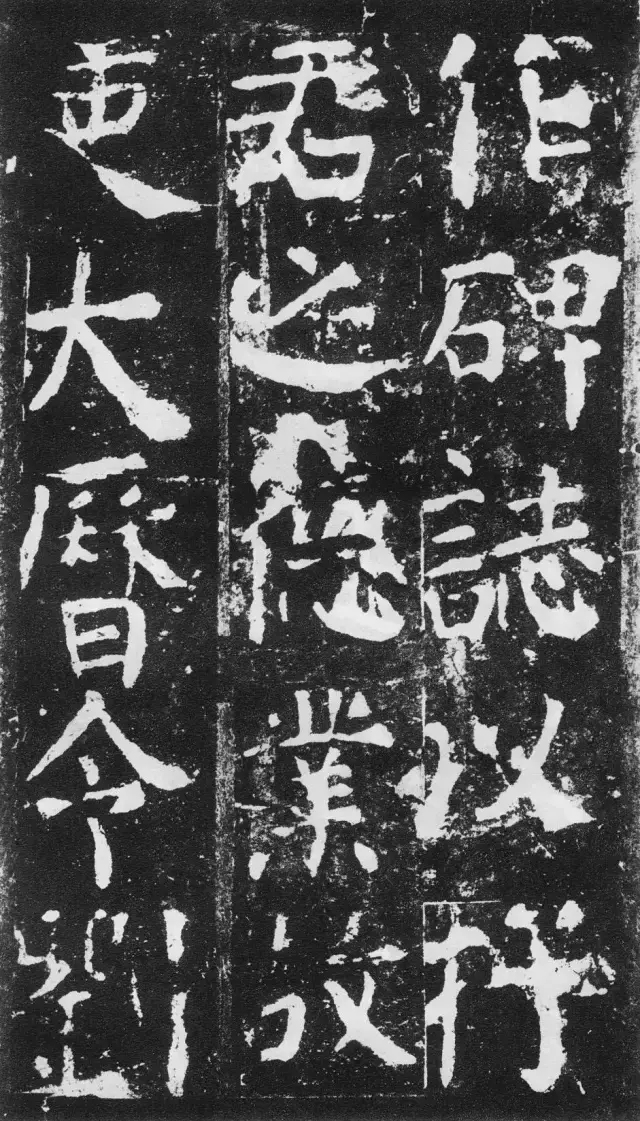 作碑誌以抒
君之德業故
吏大曆令劉